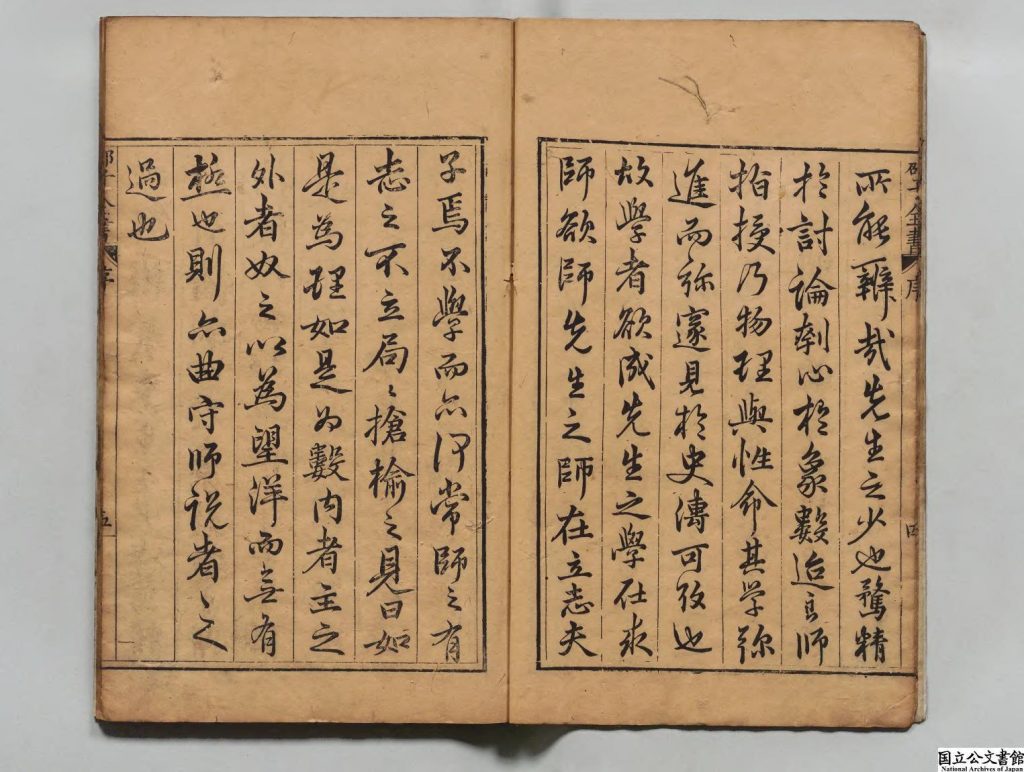 所能辦哉先生之少也騖精
於討論刳心於象數迨良師
指授乃物理與性命其學弥
進而弥邃見於史傳可攷也
故學者欲成先生之學在求
師欲師先生之師在立志夫
子焉不學而亦何常師之有
志之不立局〻搶榆之見曰如
是為理如是為數内者主之
外者奴之以為望洋而無有
極也則亦曲守师説者之
過也
全書 序
四
五
国立公文書館
National Archives of Japan